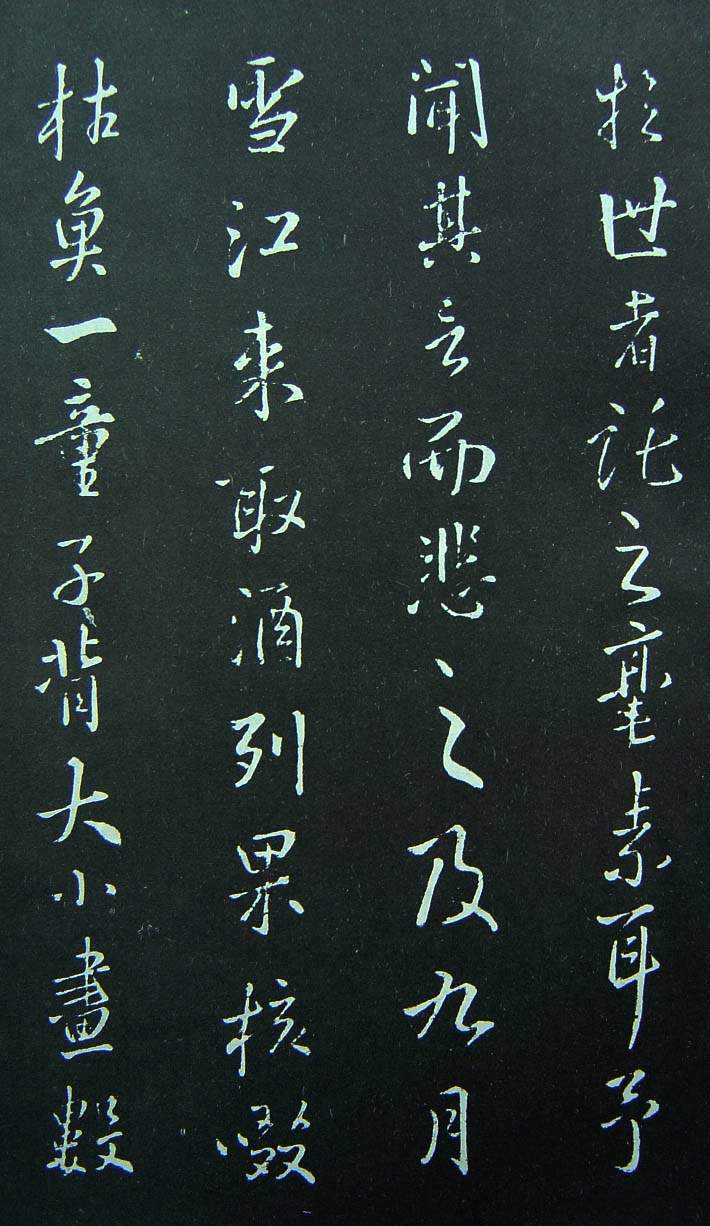 於世者託之毫素耳予
聞其言而悲之及九月
雪江來取酒列果核啜
枯魚一童子背大小畫數